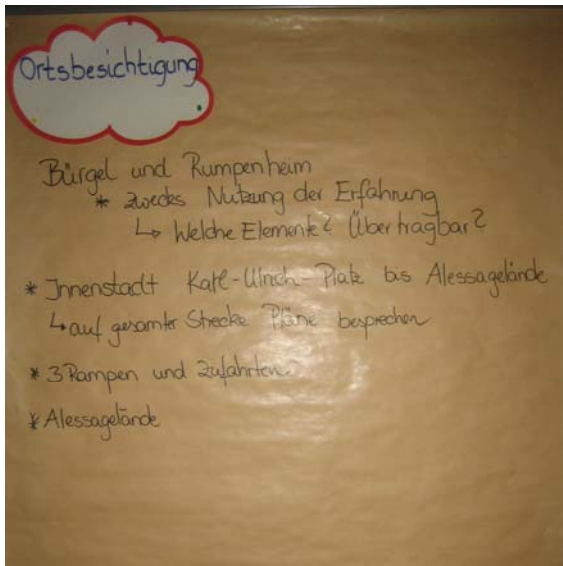 Ortsbesichtigung
Bürgel und Rumpenheim
* zwecks Nutzung der Erfahrung
↳ Welche Elemente? Übertragbar?
* Innenstadt Karl-Ulrich-Platz bis Alessagelände
↳ auf gesamter Strecke Pläne besprechen
* 3 Rampen und Zufahrten
* Alessagelände